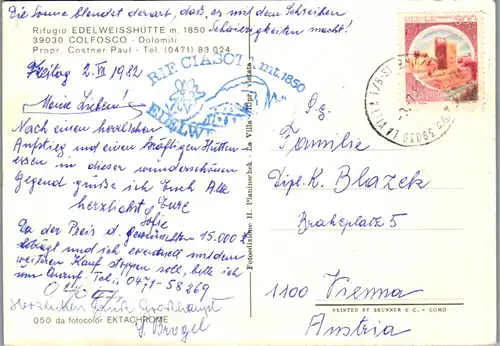 Die Sonne blendet derart, daß es mit dem Schreiben
Schwierigkeiten macht!
Rifugio EDELWEISSHÜTTE m. 1850
39030 COLFOSCO - Dolomiti
Propr. Costner Paul - Tel. (0471) 83 024
Freitag 2. VII 1982
RIF. CIABOT mt. 1850
EDELW
Meine Lieben!
Nach einem herrlichen
Aufstieg und einem kräftigen Hütten-
essen in dieser wunderschönen
Gegend grüße ich Euch Alle
herzlichst Eure
Da der Preis d. gewünschten 15.000
beträgt und ich eventuell mit dem
weiteren Kauf stoppen soll, bitte ich
um Anruf Tel.: 0471-58269
Herzlichen Gruß
050 da fotocolor EKTACHROME
Fotoedizione H. Planinschek - La Villa (Riprod. vietata)
ITALIA
39030 LA VILLA
Pg.
Familie
Dipl. K. Blazek
Braheplatz 5
1100 Vienna
Austria
PRINTED BY BRUNNER & C. - COMO